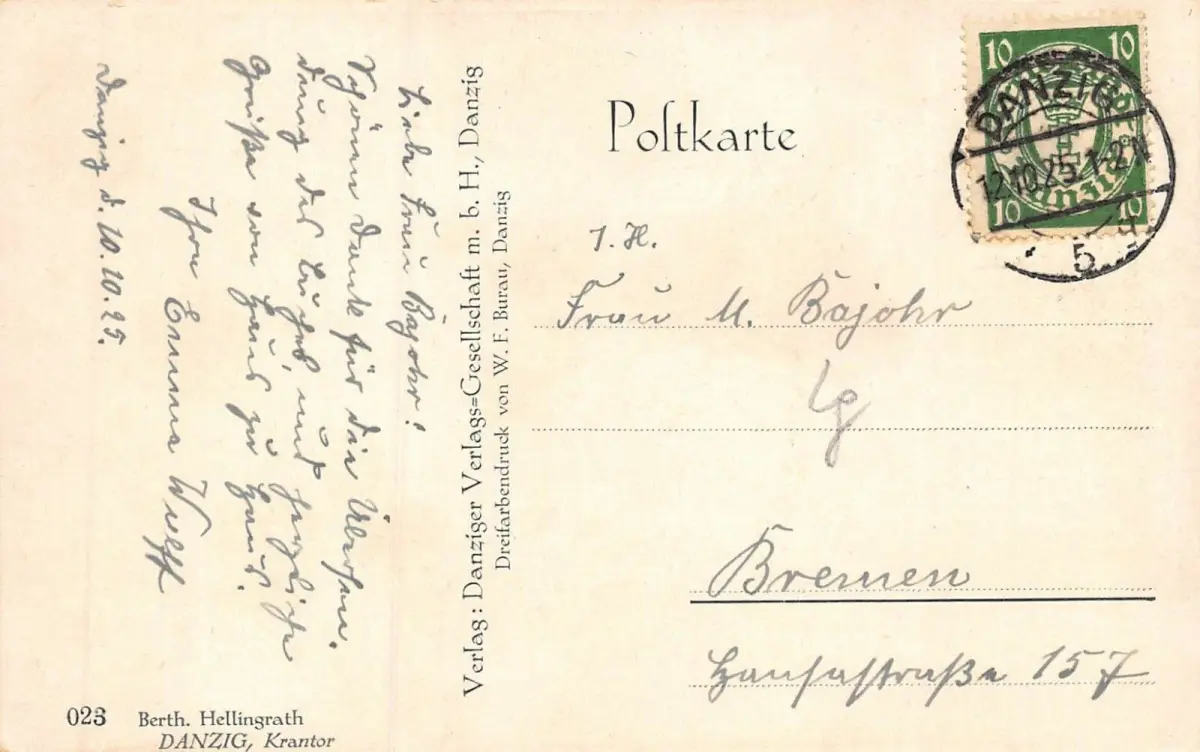 Liebe Frau Bajohr!
Schönen Dank für die Übersen-
dung des Buches und herzliche
Grüße von Haus zu Haus.
Ihre Emma Wulff
Danzig d. 10.10.25.
023 Berth. Hellingrath
DANZIG, Krantor
Verlag: Danziger Verlags=Gesellschaft m. b. H., Danzig
Dreifarbendruck von W. F. Burau, Danzig
Poſtkarte
10 10
Danzig
10 10
DANZIG
12.10.25.1-2N
5
1. H.
Frau M. Bajohr
Bremen
Hansastraße 157